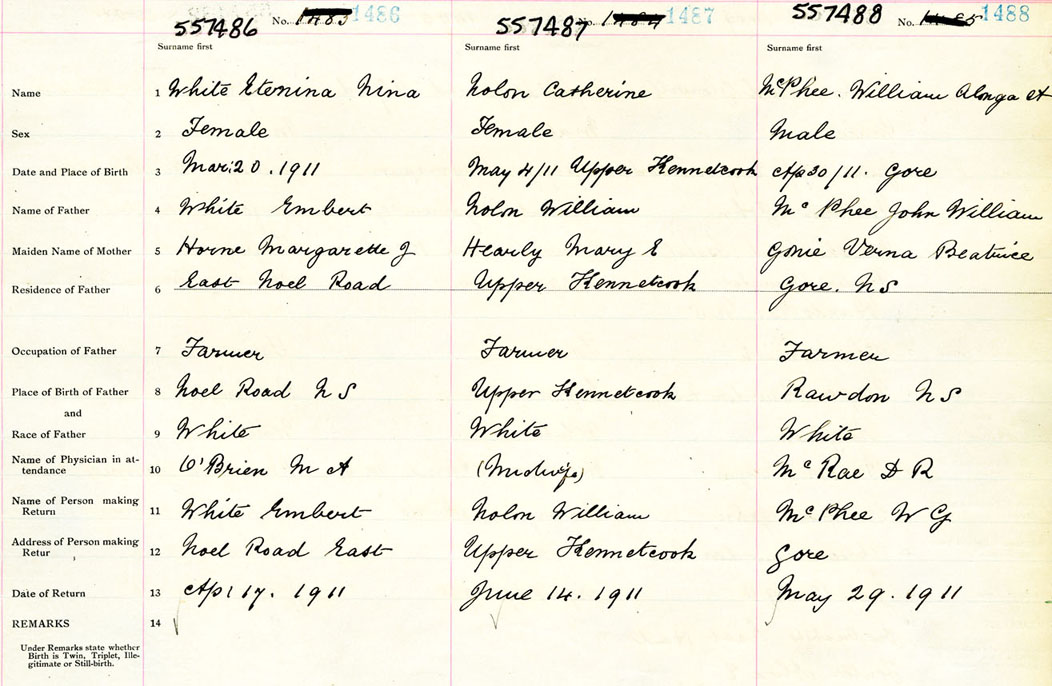 557486 No. 1483 1486 557487 No. 1484 1487 557488 No. 1485 1488
Surname first Surname first Surname first
Name 1 White Etenina Nina Nolon Catherine McPhee. William Alonga A
Sex 2 Female Female Male
Date and Place of Birth 3 Mar. 20. 1911 May 4/11 Upper Kennetcook Ap 30/11. Gore
Name of Father 4 White Embert Nolon William Mc Phee John William
Maiden Name of Mother 5 Horne Margarette J Hearly Mary E Gonie Verna Beatrice
Residence of Father 6 East Noel Road Upper Kennetcook Gore. NS
Occupation of Father 7 Farmer Farmer Farmer
Place of Birth of Father 8 Noel Road N S Upper Kennetcook Rawdon N S
and
Race of Father 9 White White White
Name of Physician in at-
tendance 10 O'Brien M A (Midwife) Mc Rae D R
Name of Person making
Return 11 White Embert Nolon William Mc Phee W G
Address of Person making
Retur 12 Noel Road East Upper Kennetcook Gore
Date of Return 13 Apl 17. 1911 June 14. 1911 May 29. 1911
REMARKS 14
Under Remarks state whether
Birth is Twin, Triplet, Ille-
gitimate or Still-birth.